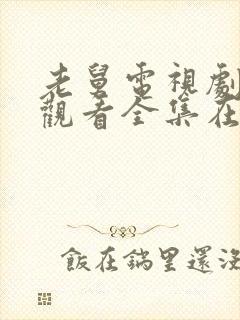 老舅電視劇
觀看全集在
飯在鍋里還沒